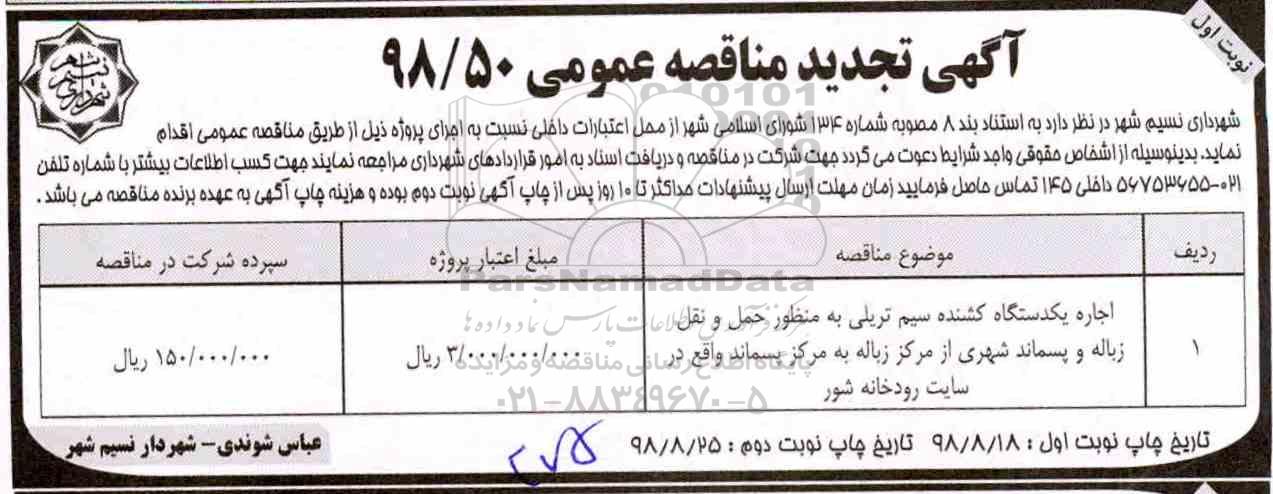 نوبت اول
شهرداری نسیم شهر
آگهی تجدید مناقصه عمومی ۹۸/۵۰
شهرداری نسیم شهر در نظر دارد به استناد بند ۸ مصوبه شماره ۱۳۴ شورای اسلامی شهر از محل اعتبارات داخلی نسبت به اجرای پروژه ذیل از طریق مناقصه عمومی اقدام
نماید. بدینوسیله از اشخاص حقوقی واجد شرایط دعوت می گردد جهت شرکت در مناقصه و دریافت اسناد به امور قراردادهای شهرداری مراجعه نمایند جهت کسب اطلاعات بیشتر با شماره تلفن
۰۲۱-۵۶۷۵۳۶۵۵ داخلی ۱۴۵ تماس حاصل فرمایید زمان مهلت ارسال پیشنهادات حداکثر تا ۱۰ روز پس از چاپ آگهی نوبت دوم بوده و هزینه چاپ آگهی به عهده برنده مناقصه می باشد .
ردیف موضوع مناقصه مبلغ اعتبار پروژه سپرده شرکت در مناقصه
اجاره یکدستگاه کشنده سیم تریلی به منظور حمل و نقل
۱ زباله و پسماند شهری از مرکز زباله به مرکز پسماند واقع در ۳/۰۰۰/۰۰۰/۰۰۰ ریال ۱۵۰/۰۰۰/۰۰۰ ریال
سایت رودخانه شور
تاریخ چاپ نوبت اول : ۹۸/۸/۱۸ تاریخ چاپ نوبت دوم : ۹۸/۸/۲۵
عباس شوندی- شهردار نسیم شهر
ParsNamadData
مرکز فرآوری اطلاعات پارس نماد داده ها
پایگاه اطلاع رسانی مناقصه و مزایده
۰۲۱-۸۸۳۴۹۶۷۰-۵